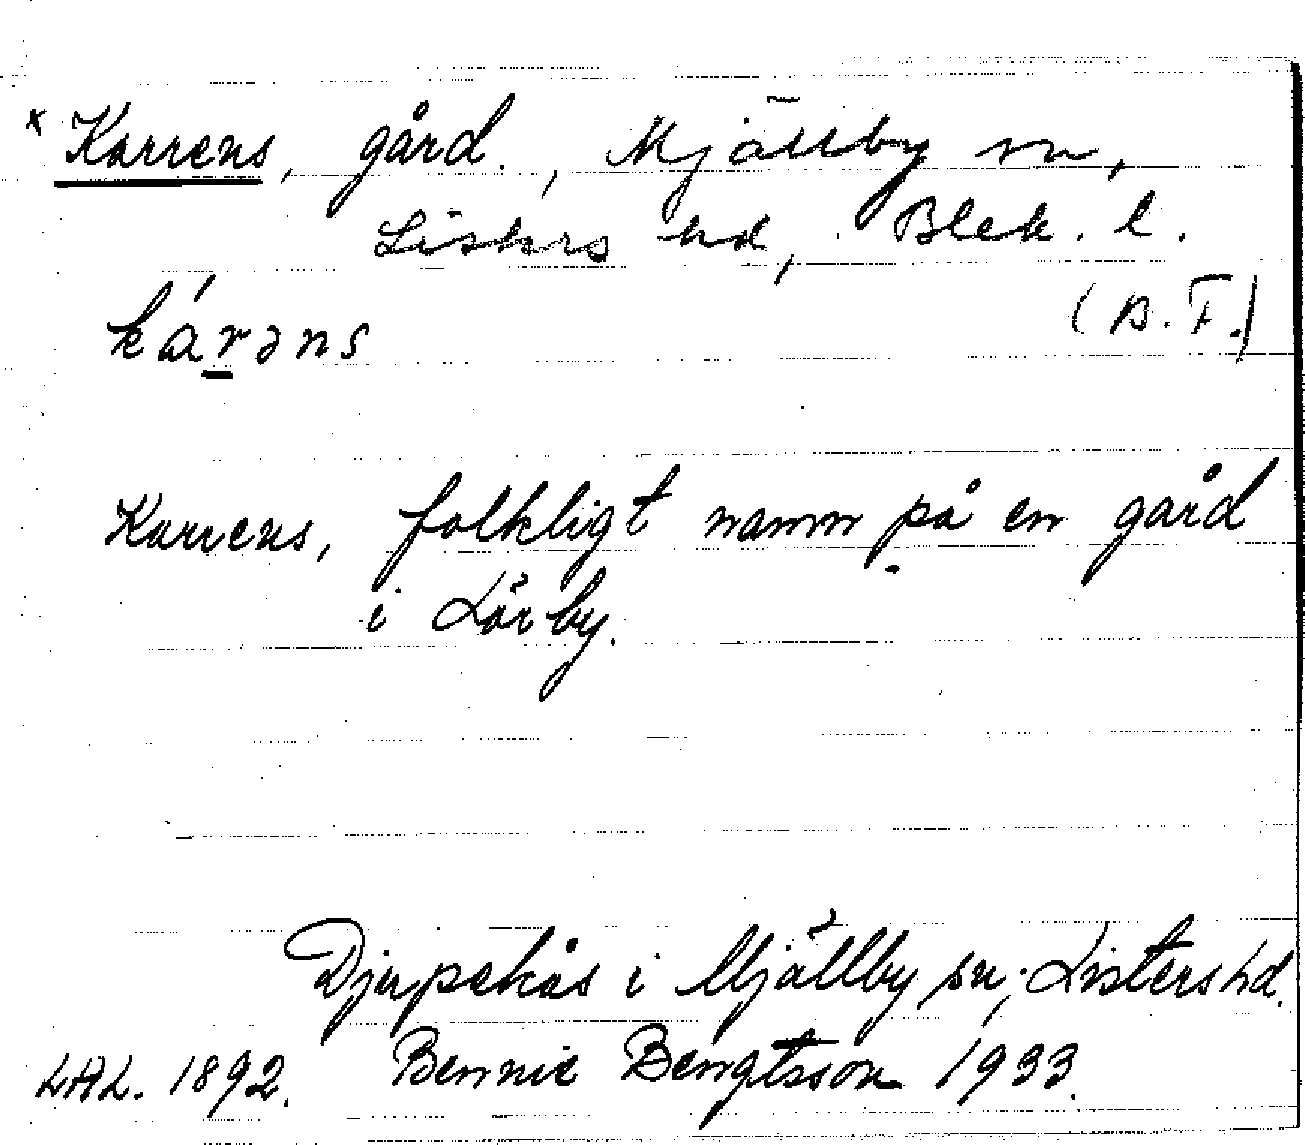 x Karrens, gård., Mjällby sn,
Listers hd, Blek. l.
(B.F.)
kárəns
Karrens, folkligt namn på en gård
i Lörby.
Djupekås i Mjällby sn, Listers hd.
LAL. 1892. Bennie Bengtsson 1933.